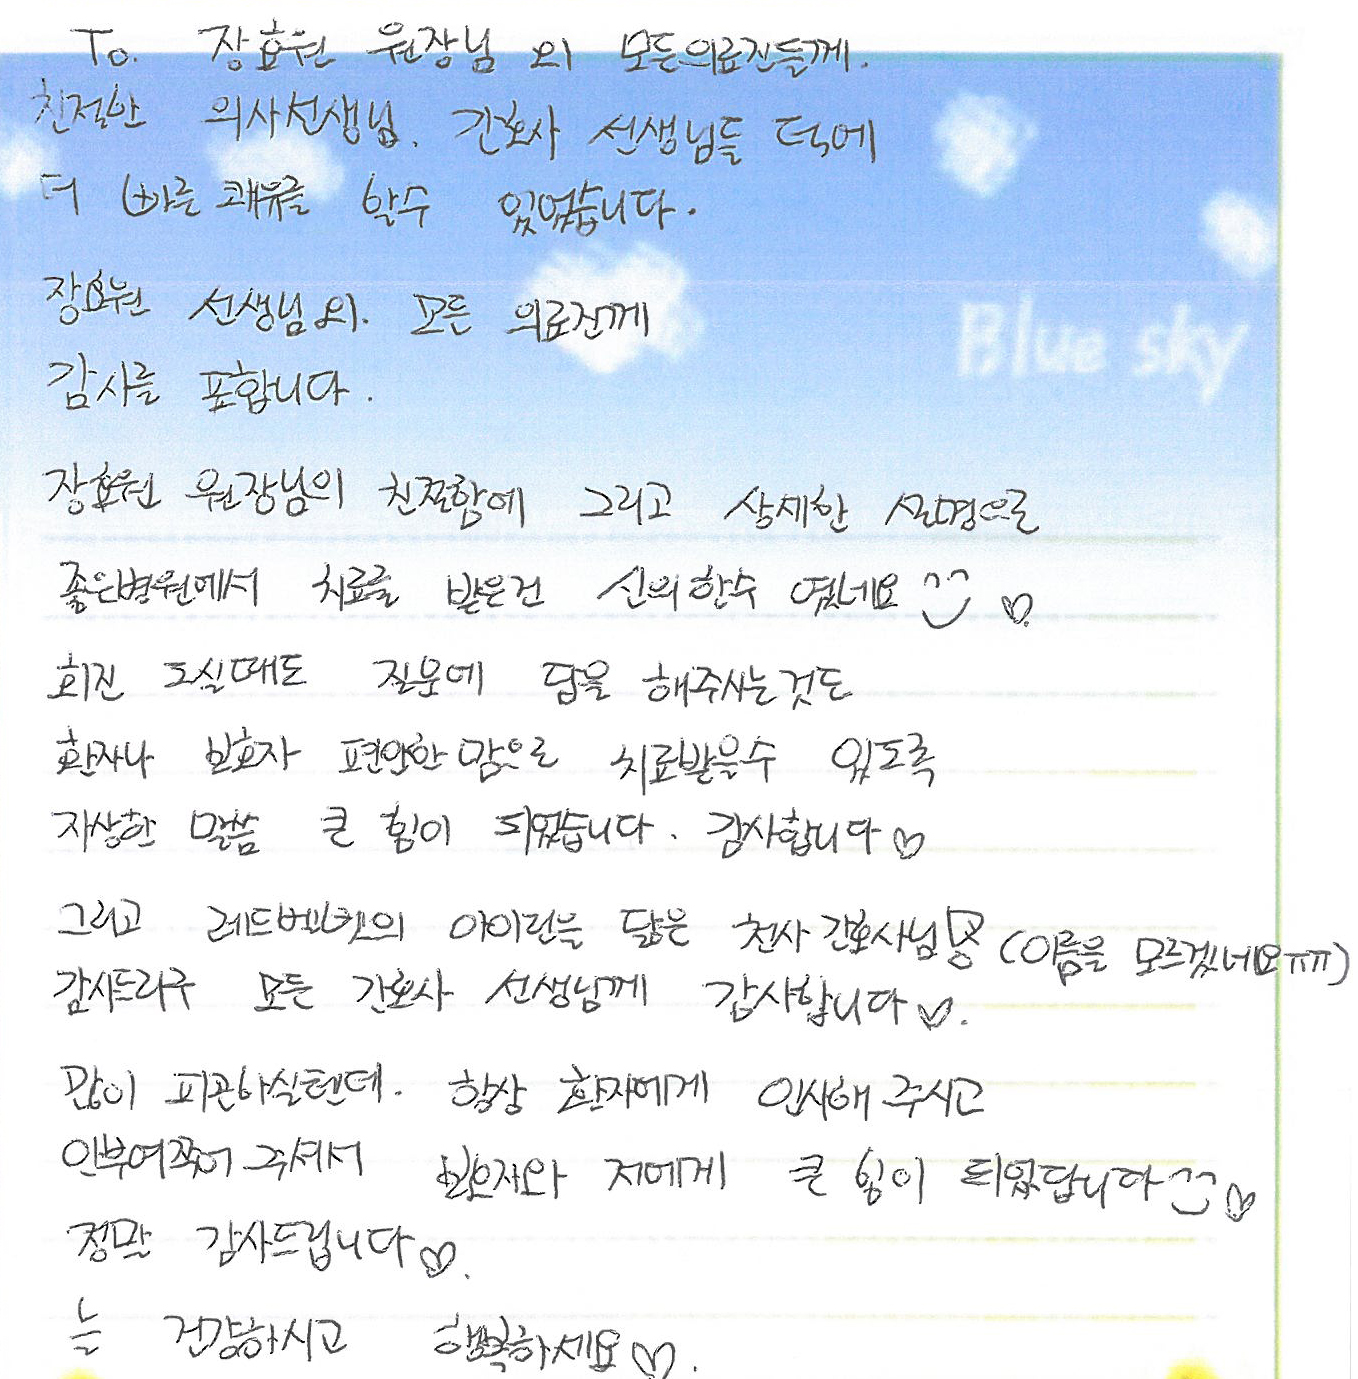 To. 장효원 원장님 외 모든의료진들께.
친절한 의사선생님. 간호사 선생님들 덕에
더 빠른 쾌유를 할수 있었습니다.
Blue sky
장효원 선생님외. 모든 의료진께
감사를 표합니다.
장효원 원장님의 친절함에 그리고 상세한 설명으로
좋은병원에서 치료를 받은건 신의한수 였네요
회진 도실때도 질문에 답을 해주시는것도
환자나 보호자 편안한맘으로 치료받을수 있도록
자상한 말씀 큰 힘이 되었습니다. 감사합니다♡
그리고 레드벨벳의 아이린을 닮은 천사간호사님 (이름을 모르겠네요ㅠㅠ)
감사드리구 모든 간호사 선생님께 감사합니다♡.
많이 피곤하실텐데. 항상 환자에게 인사해 주시고
안부여쭈어 주셔서 보호자와 저에게 큰 힘이 되었답니다
정말 감사드립니다♡.
늘 건강하시고 행복하세요♡.